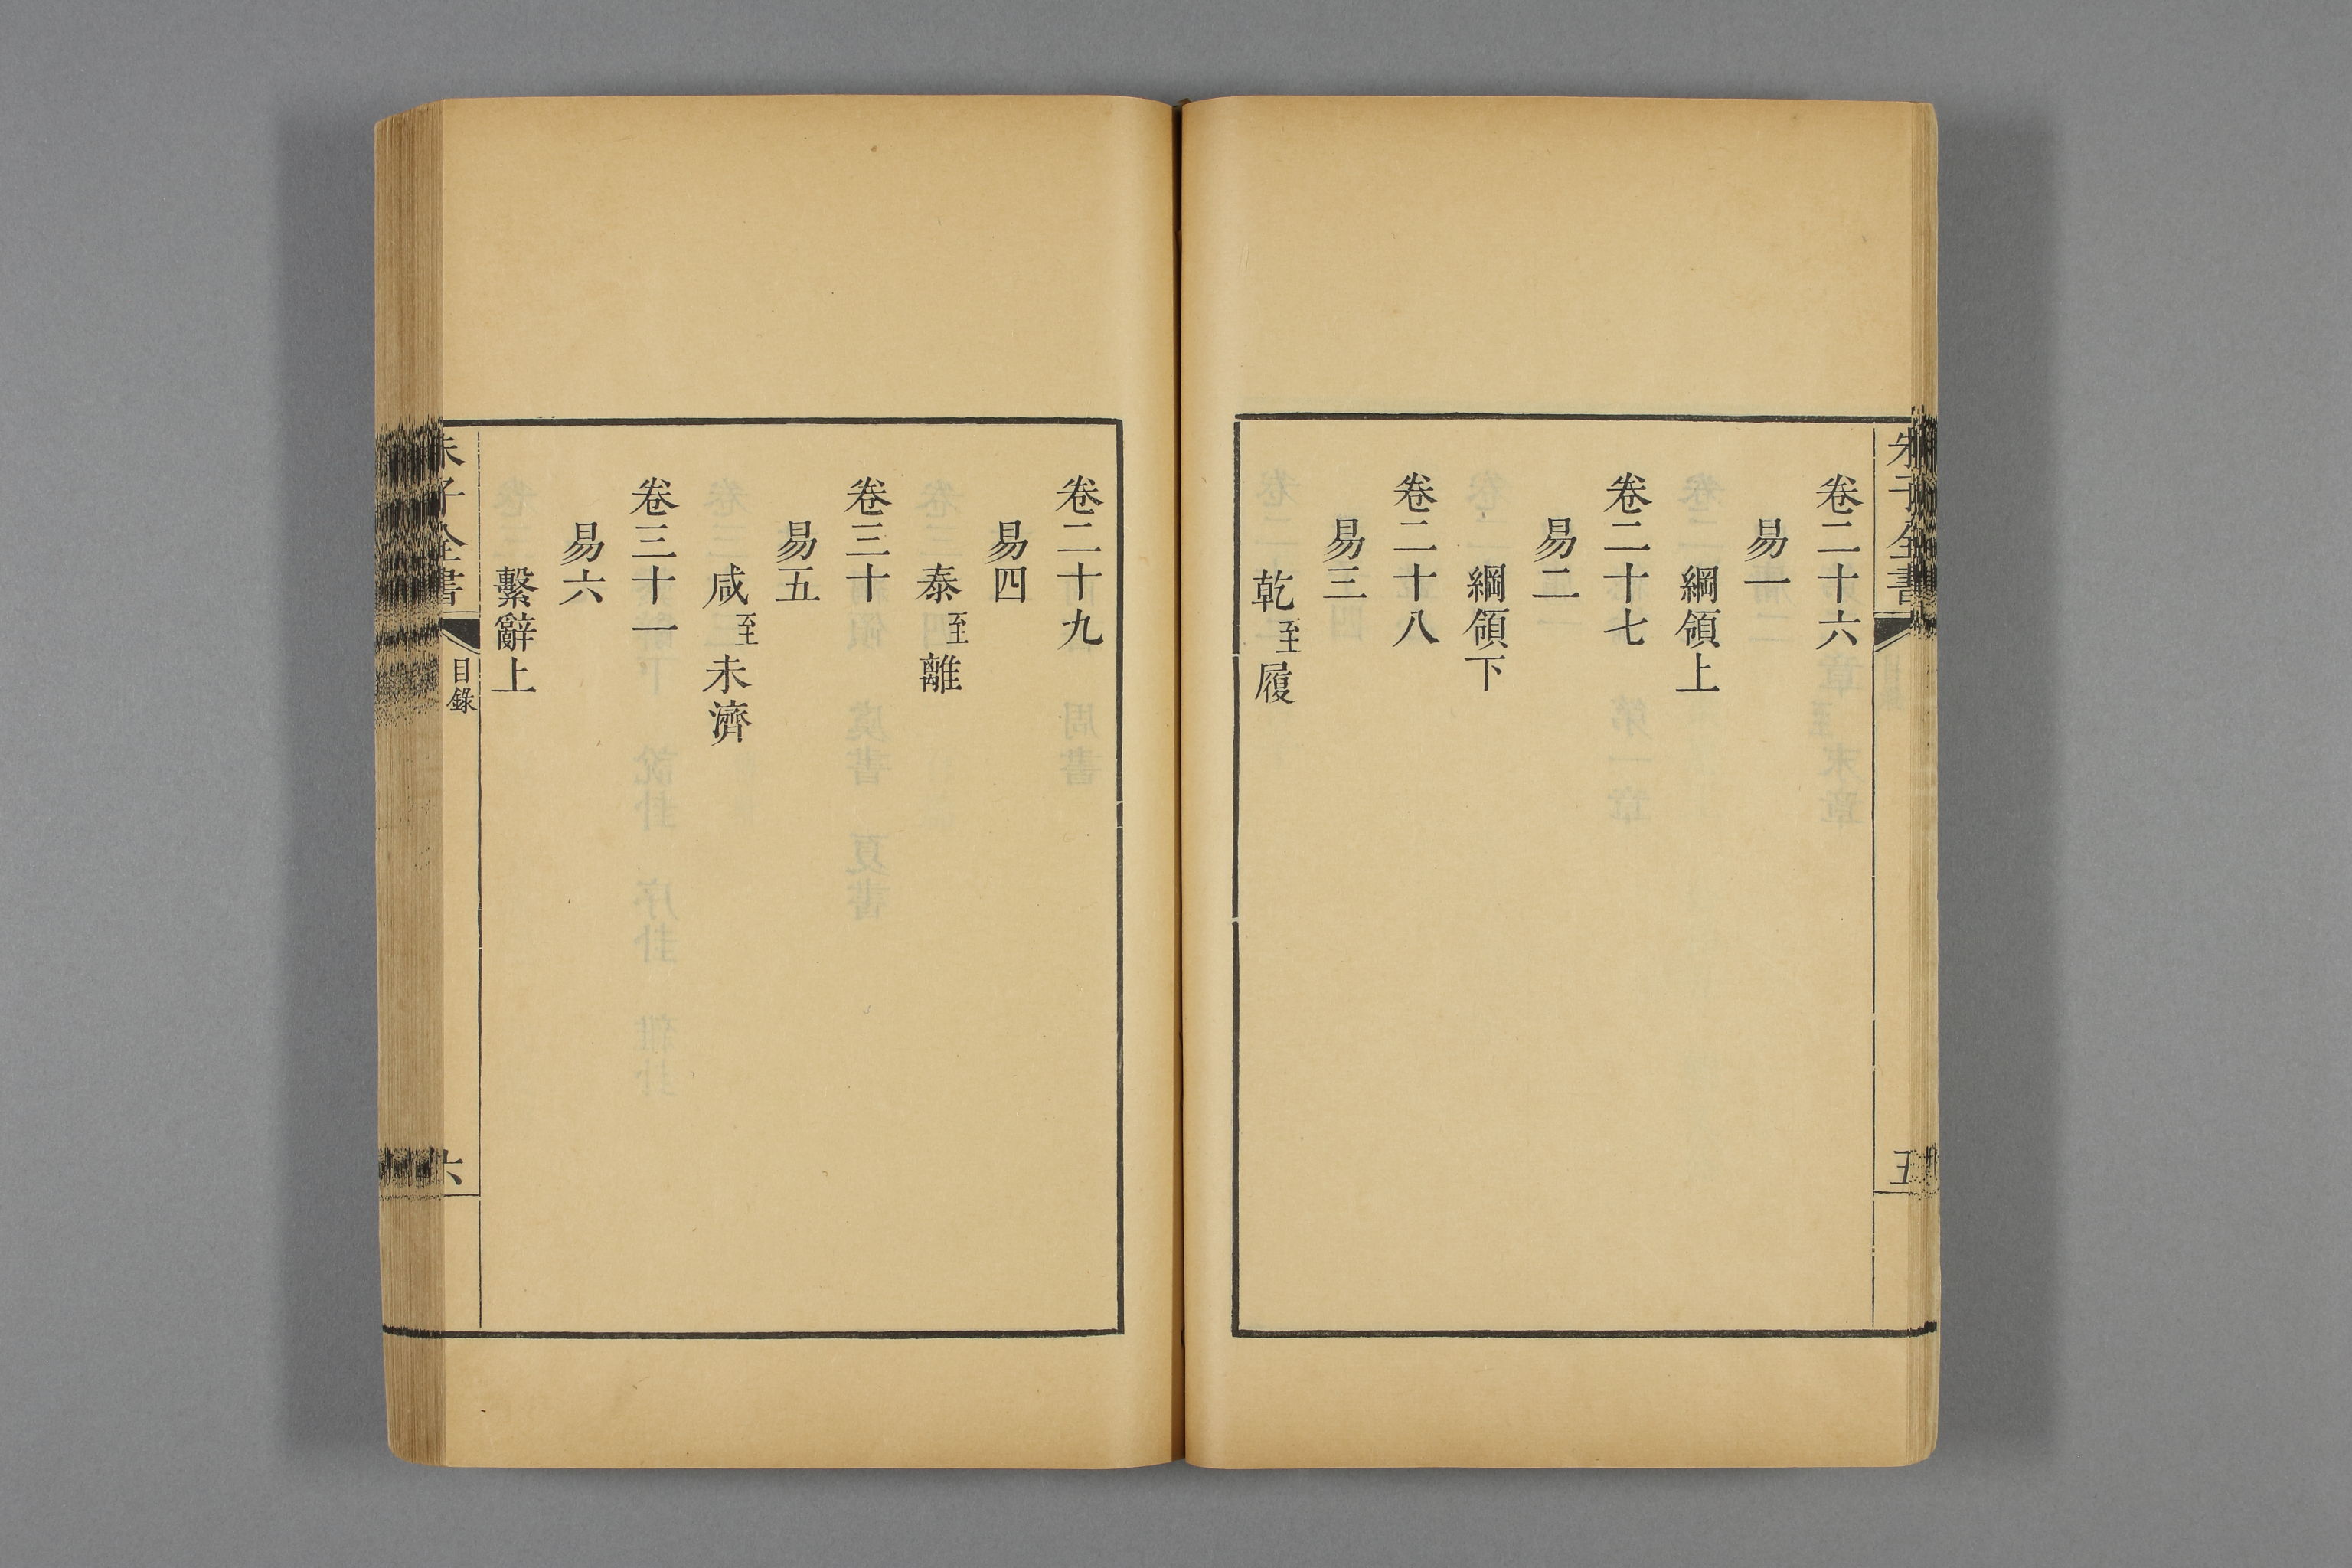 朱子全書
五
卷二十六
易一
綱領上
卷二十七
易二
綱領下
卷二十八
易三
乾至履
卷二十九
易四
泰至離
卷三十
易五
咸至未濟
卷三十一
易六
繫辭上
朱子全書
目錄
六